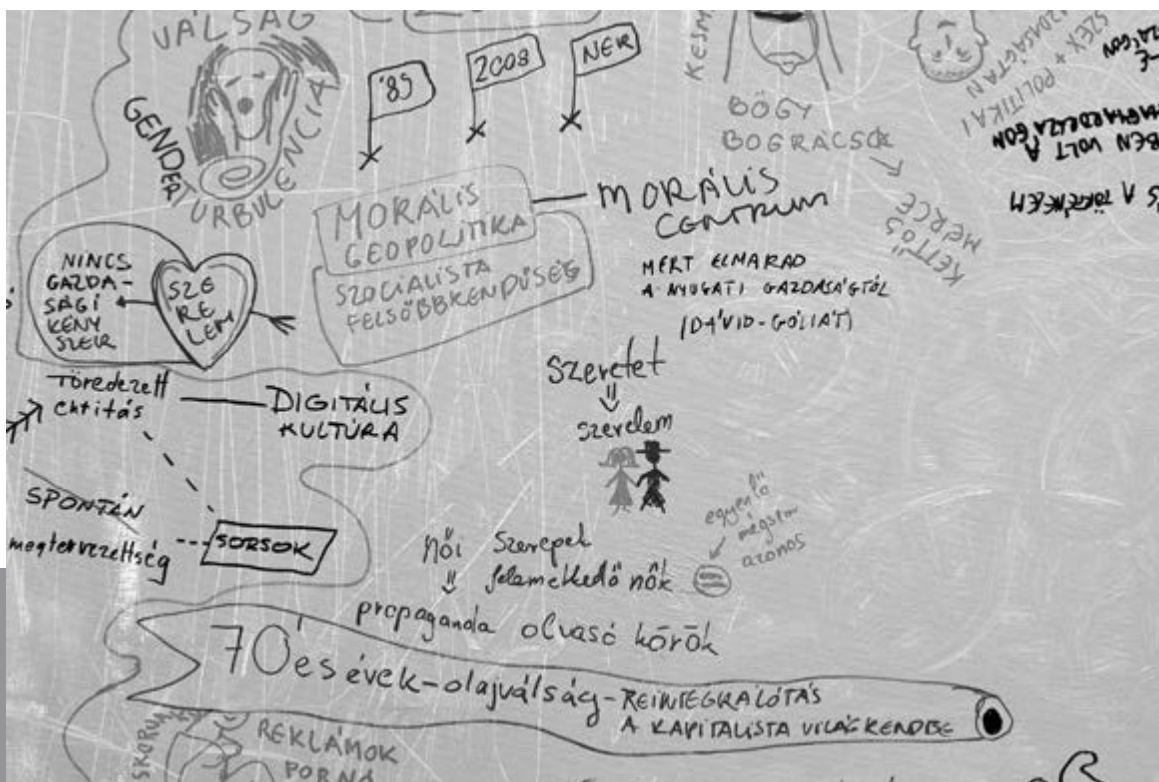 VÁLSÁG
GENDER
TURBULENCIA
'89
2008
NER
KESM
BÖGY
BOGRÁCSOK
KETTŐS
MÉRCE
SZEX + POLITIKAI
BEN VOLT A
MAGYARORSZÁGON
S A TÖRTÉNELEM
MORÁLIS
GEOPOLITIKA
SZOCIALISTA
FELSŐBBRENDŰSÉG
MORÁLIS
CENTRUM
MERT ELMARAD
A NYUGATI GAZDASÁGTÓL
(DÁVID-GÓLIÁT)
NINCS
GAZDA-
SÁGI
KÉNY
SZER
SZE
RE
LEM
Töredezett
entitás
DIGITÁLIS
KULTÚRA
SPONTÁN
megtervezettség
SORSOK
szeretet
szerelem
női szerepek
felemelkedő nők
egyenlő
mégsem
azonos
propaganda olvasó körök
70'es évek-olajválság-REINTEGRÁLÓTÁS
A KAPITALISTA VILÁGRENDBE
REKLÁMOK
PORNÓ